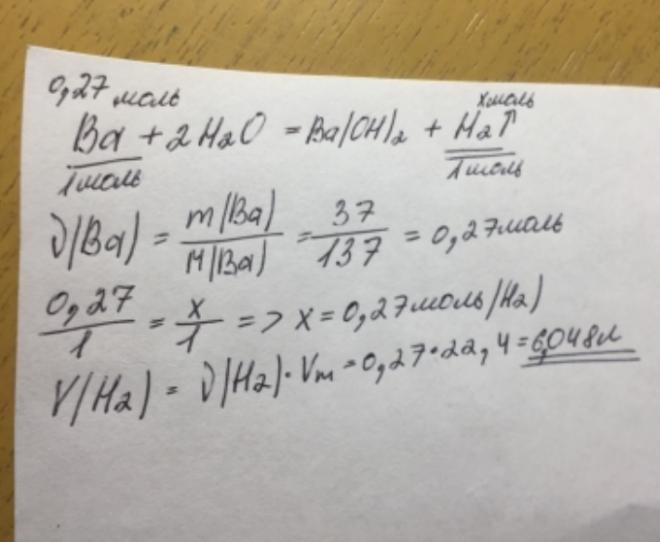 0,27 моль
xмоль
Ba + 2H2O = Ba(OH)2 + H2↑
1моль 1моль
ν(Ba) = m(Ba)/M(Ba) = 37/137 = 0,27моль
0,27/1 = x/1 => x = 0,27моль(H2)
V(H2) = ν(H2)·Vm = 0,27·22,4 = 6,048л